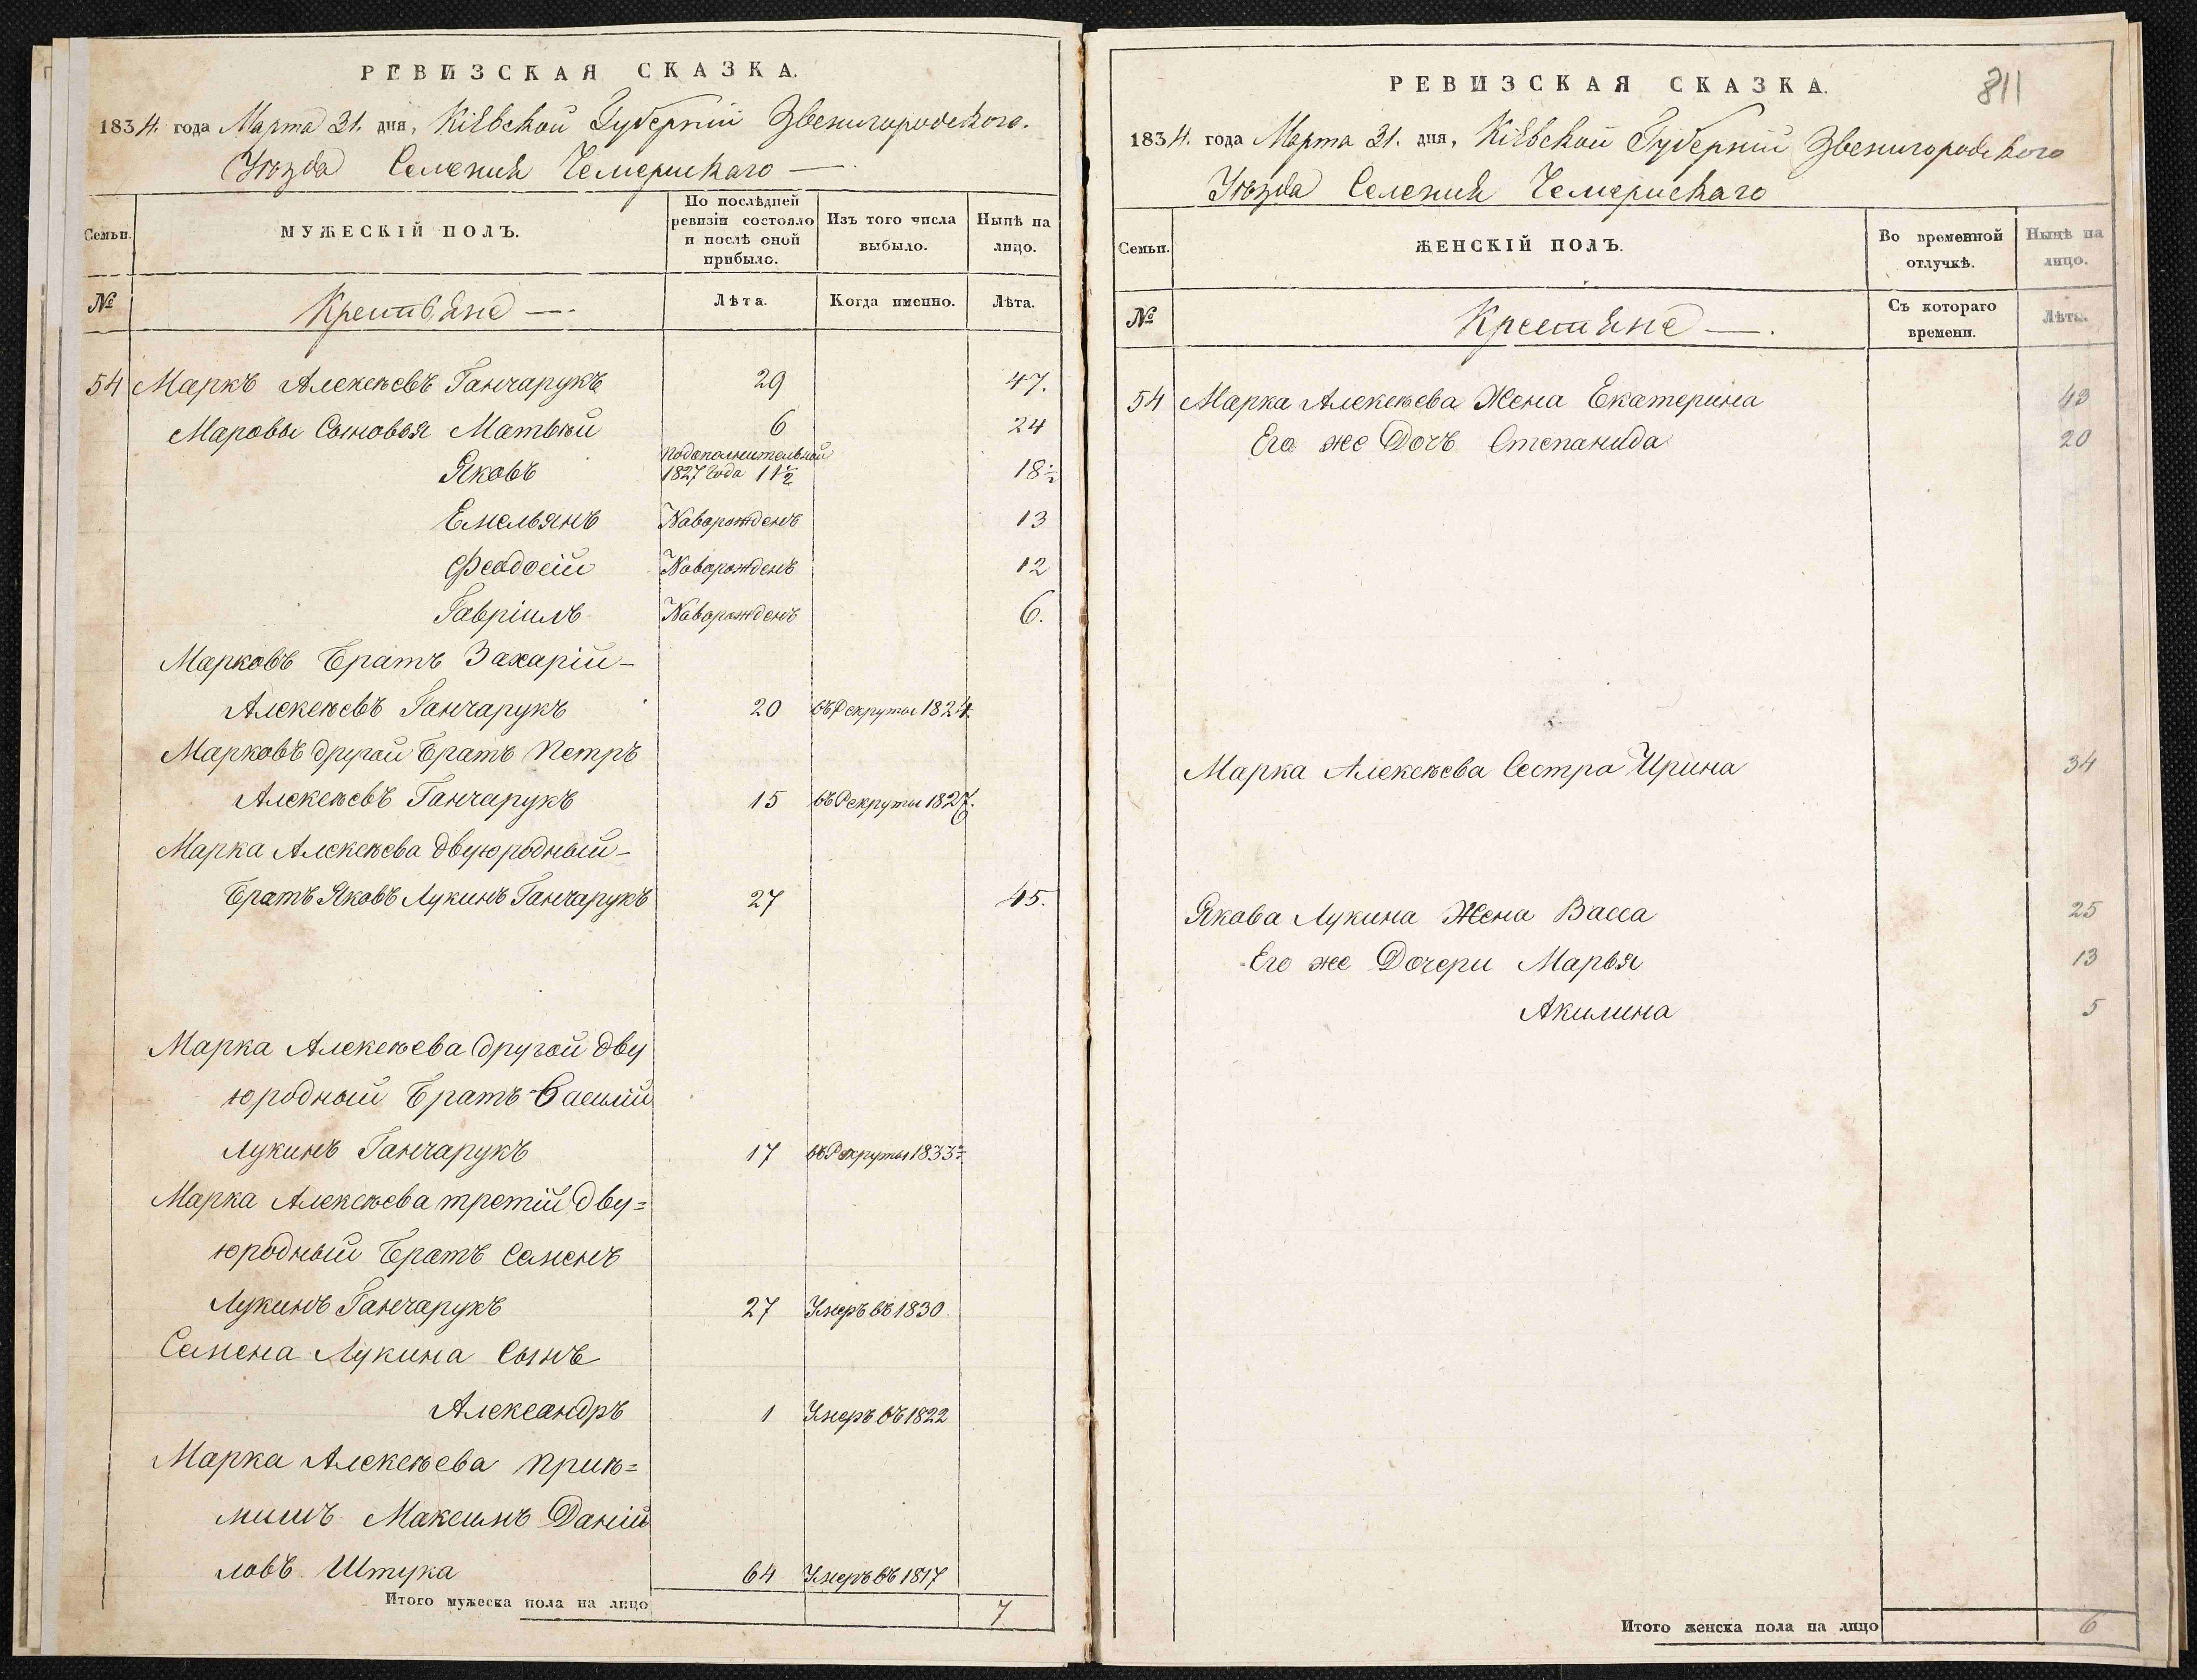 РЕВИЗСКАЯ СКАЗКА.
1834. года Марта 31. дня, Кіевской Губерніи Звенигородского.
Уѣзда Селенія Чемерискаго —
Семьи.
МУЖЕСКІЙ ПОЛЪ.
По послѣдней ревизіи состояло и послѣ оной прибыло.
Изъ того числа выбыло.
Нынѣ на лицо.
№
Крестьяне —
Лѣта.
Когда именно.
Лѣта.
54 Маркъ Алексѣевъ Ганчарукъ 29 47.
Маровы Сыновья Матвѣй 6 24
Яковъ подополнительной 1827 Года 11½ 18½
Емельянъ Новорожденъ 13
Феодосій Новорожденъ 12
Гавріилъ Новорожденъ 6.
Марковъ Братъ Захарій —
Алексѣевъ Ганчарукъ 20 въ Рекруты 1824
Марковъ другой Братъ Петръ
Алексѣевъ Ганчарукъ 15 въ Рекруты 1827.
Марка Алексѣева двуюродный —
Братъ Яковъ Лукинъ Ганчарукъ 27 45.
Марка Алексѣева другой дву
юродный Братъ Василій
Лукинъ Ганчарукъ 17 въ Рекруты 1833
Марка Алексѣева третій дву=
юродный Братъ Семенъ
Лукинъ Ганчарукъ 27 Умеръ въ 1830.
Семена Лукина Сынъ
Александръ 1 Умеръ въ 1822
Марка Алексѣева пріѣ=
мышъ Максимъ Даній
ловъ Штука 64 Умеръ въ 1817
Итого мужеска пола на лицо 7
811
РЕВИЗСКАЯ СКАЗКА.
1834. года Марта 31. дня, Кіевской Губерніи Звенигородского
Уѣзда Селенія Чемерискаго
Семьи.
ЖЕНСКІЙ ПОЛЪ.
Во временной отлучкѣ.
Нынѣ на лицо.
№
Крестяне —.
Съ котораго времени.
Лѣта.
54 Марка Алексѣева Жена Екатерина 43
Его же Дочъ Степанида 20
Марка Алексѣева Сестра Ирина 34
Якова Лукина Жена Васса 25
Его же Дочери Марья 13
Акилина 5
Итого женска пола на лицо 6